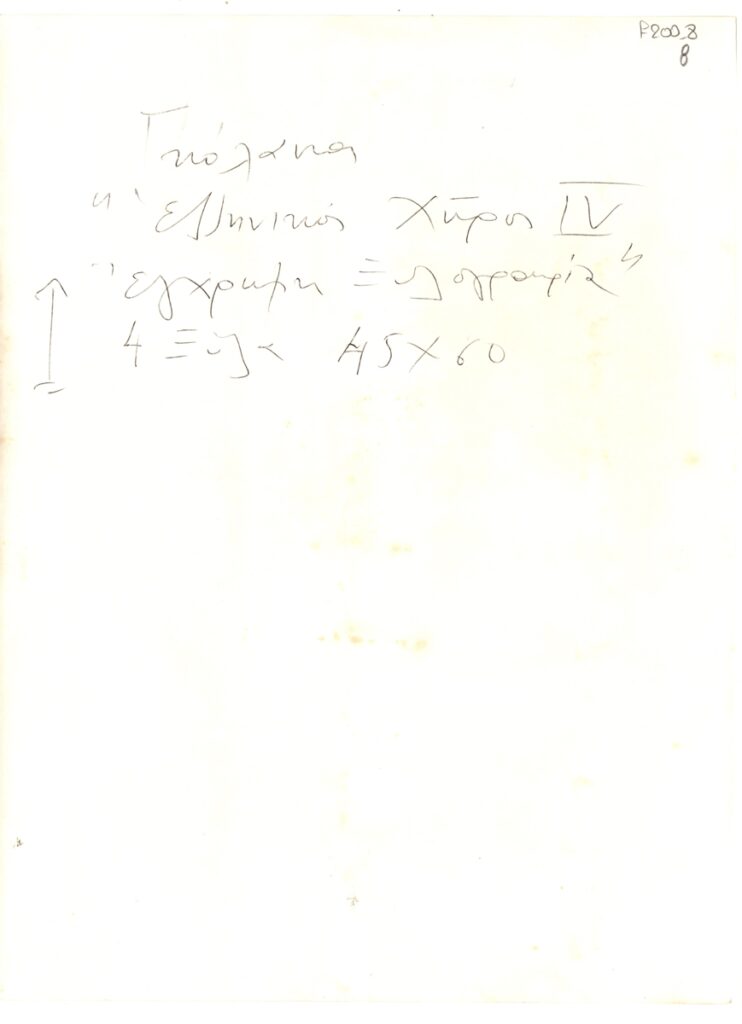 F200_8
8
"Ἑλληνικός Χώρος IV
"Ἔγχρωμη Ξυλογραφία"
4 Ξύλα 45X60